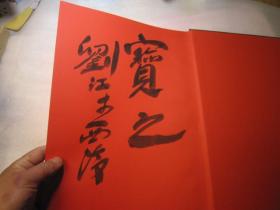 寶之
劉江於西泠